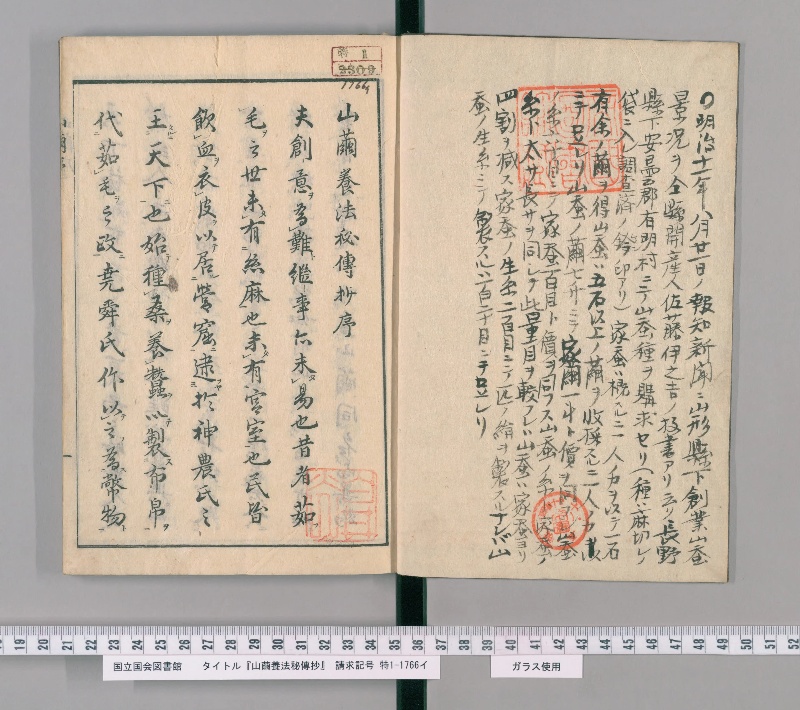 〇明治十一年八月廿一日ノ報知新聞ニ山形縣下創業山蚕
景況ヲ仝縣開産人佐藤伊之吉ノ投書アリ云ク長野
縣下安曇郡有明村ニテ山蚕種ヲ購求セリ(種ハ麻切レノ
袋ニ入調査済ノ鈴印アリ)家蚕ハ概スルニ一人力ヲ以テ一石
有余ノ繭ヲ得山蚕ハ五石以上ノ繭ヲ收穫スルニ一人力
ニテ足レリ山蚕ノ繭七升ニテ家繭一斗ト價ヲ同ヲ山蚕
ノ糸六十目ニテ家蚕百目ト價ヲ同フス山蚕ノ糸ハ家蚕ノ
糸ト太サ長サヲ同シク此量目ヲ較フレハ山蚕ハ家蚕ヨリ
四割ヲ減ス家蚕ノ生糸二百目ニテ一匹ノ絹ヲ製スルナレバ山
蚕ノ生糸ニテ製スルハ百二十目ニテ足レリ
特1
2309
1766
山繭養法秘傳抄序
夫創意爲難繼事亦未易也昔者茹
毛之世未有絲麻也未有宮室也民皆
飲血衣皮以居營窟逮於神農氏之
王天下也始種桑養蠶以製布帛
代茹毛之政堯舜氏作以之爲幣物
国立国会図書館 タイトル『山繭養法秘傳抄』 請求記号 特1-1766イ
ガラス使用
19 20 21 22 23 24 25 26 27 28 29 30 31 32 33 34 35 36 37 38 39 40 41 42 43 44 45 46 47 48 49 50 51 52